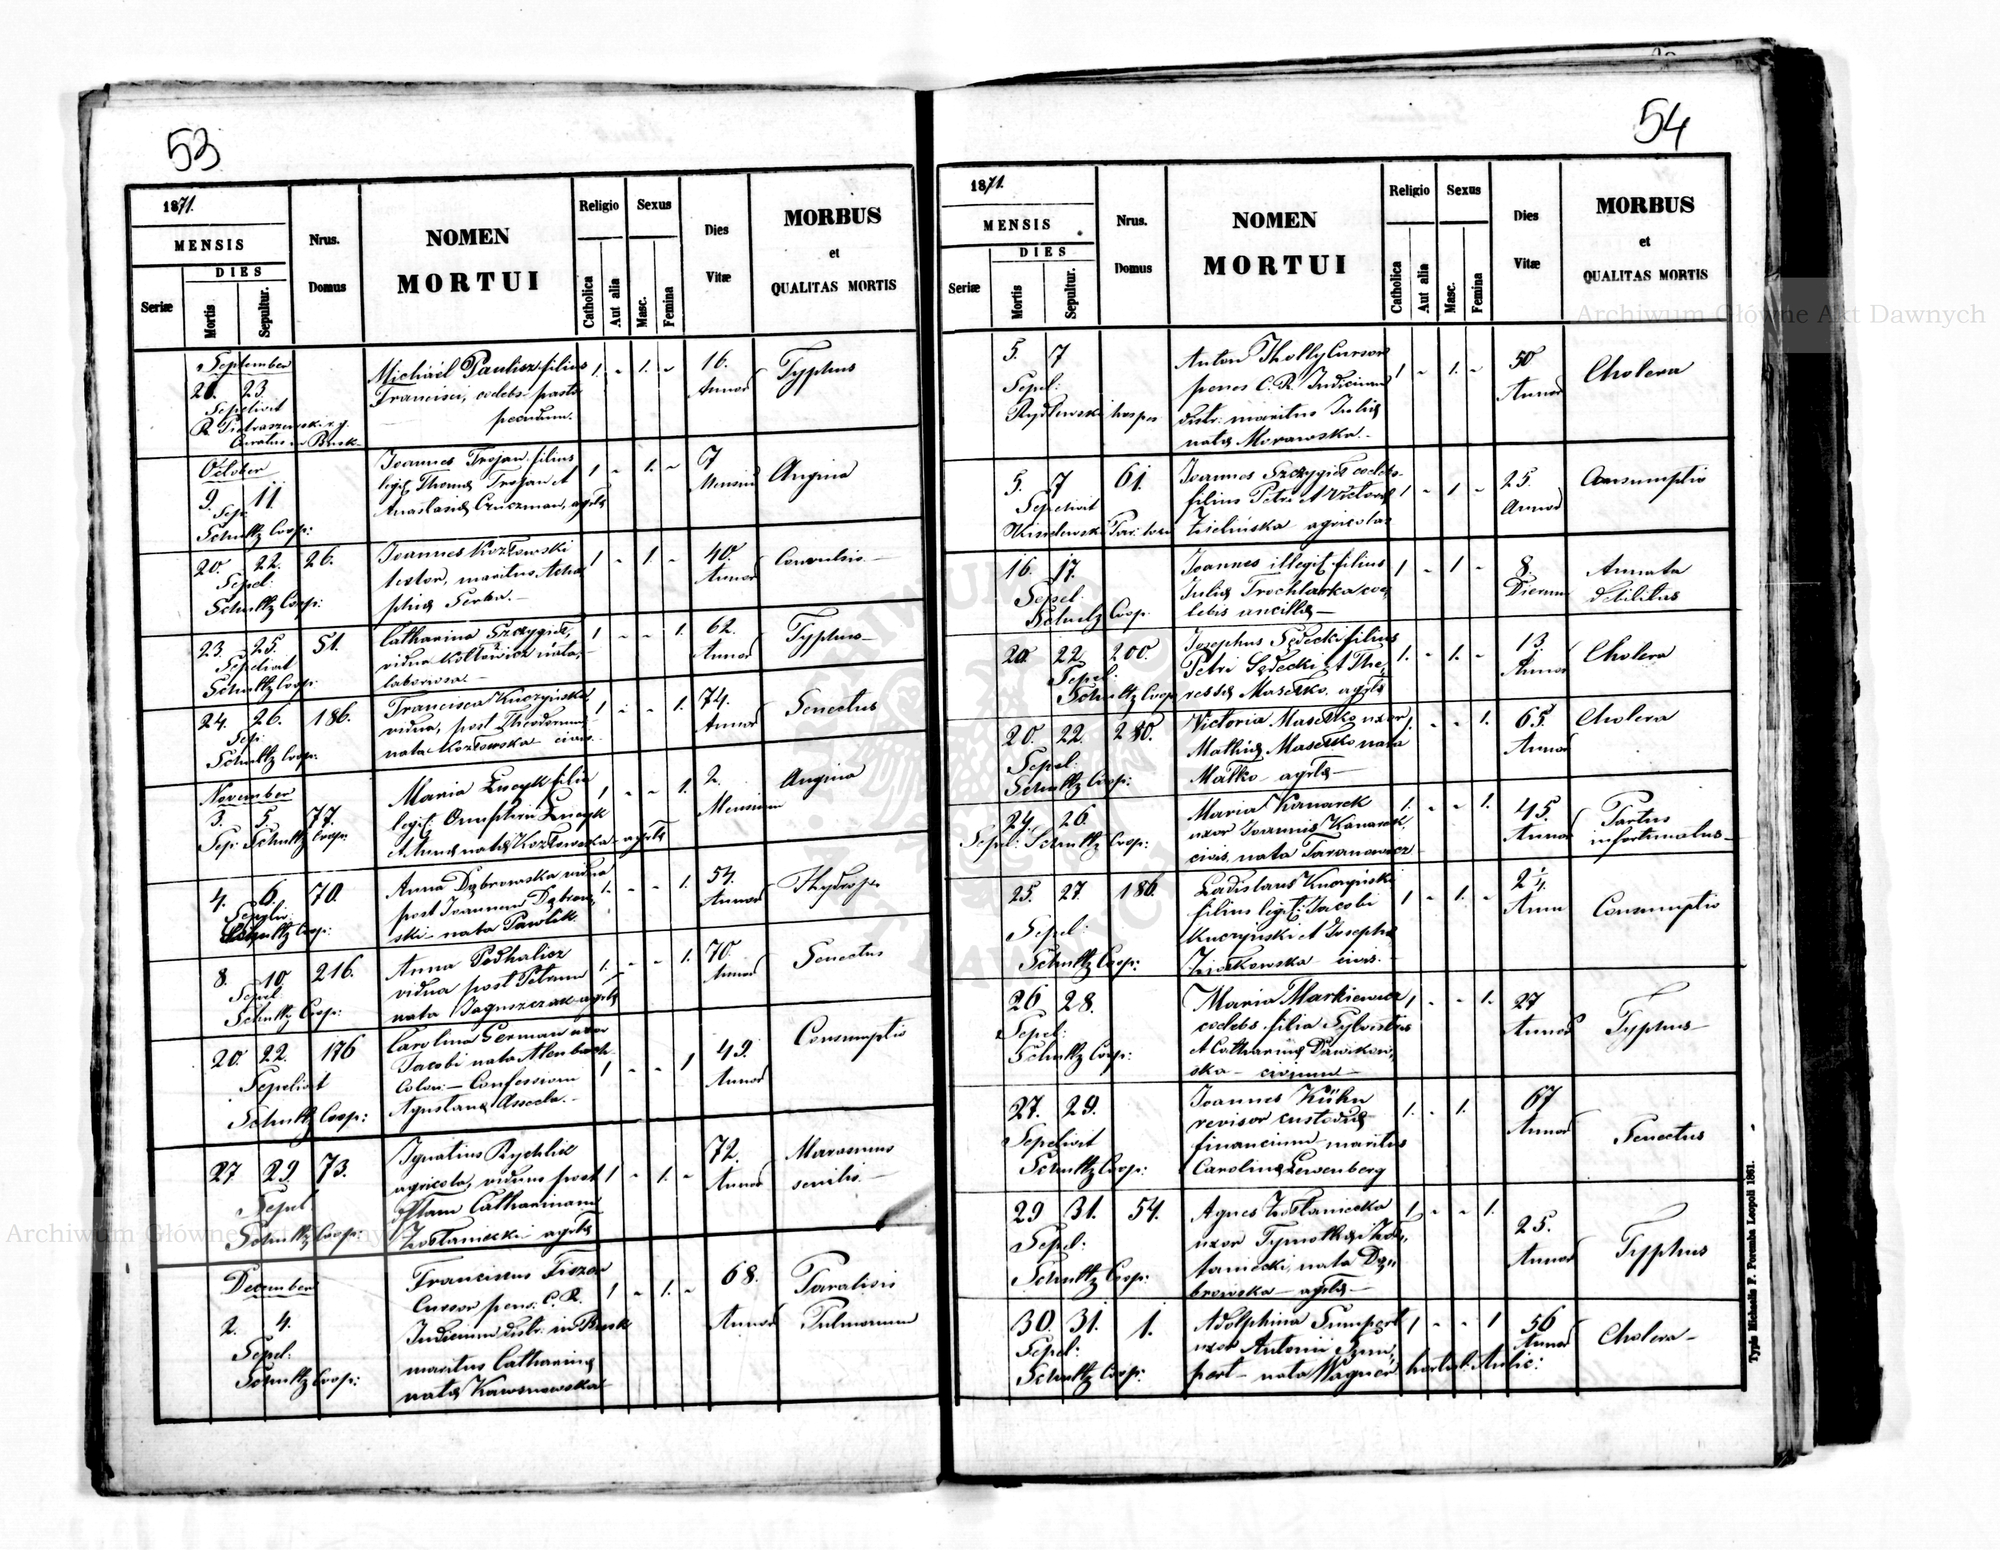 53
1871.
MENSIS
DIES
Seriæ
Mortis
Sepultur.
Nrus.
Domus
NOMEN
MORTUI
Religio
Catholica
Aut alia
Sexus
Masc.
Femina
Dies
Vitæ
MORBUS
et
QUALITAS MORTIS
September
23.
Sepelivit
Michaël Paulisz filius
Francisci, coelebs
1. - 1. -
16.
Annor
Typhus
October
9. 11.
Sep:
Schultz Coop:
Joannes Trojan filius
legit. Thomæ Trojan et
Anastasiæ
1 - 1. -
7
Mensium
Angina
20. 22. 26.
Sepel:
Schultz Coop:
Joannes Kozłowski
textor, maritus
1 - 1. -
40.
Annor
Convulsio
23. 25. 51.
Sepelivit
Schultz Coop:
Catharina Szczygieł,
vidua nata,
laboriosa.
1 - - 1.
62.
Annor
Typhus
24. 26. 186.
Sep:
Schultz Coop:
Francisca Kuczyńska
vidua, post Theodorum
nata Kozłowska civis.
1 - - 1.
74.
Annor
Senectus
November
3. 5. 77.
Sep: Schultz Coop:
Maria Łucyk filia
legit: Onuphrii Łucyk
et Annæ natæ Kozłowska agrlæ
1 - - 1.
2.
Mensium
Angina
4. 6. 70.
Schultz Coop:
Anna Dąbrowska vidua
post Joannem Dąbrow,
ski nata Pawlik
1. - - 1.
54.
Annor
Hydrops
8. 10. 216.
Sepel
Schultz Coop:
Anna Podhalicz
vidua post Petrum
nata Jaguszczak agrlæ
1. - - 1.
70.
Annor
Senectus
20. 22. 176
Sepelivit
Schultz Coop:
Carolina German uxor
Jacobi nata
Colon: Confessionis
Agustanæ Assecla.
1 - - 1
49.
Annor
Consumptio
27. 29. 73.
Sepel.
Schultz Coop:
Ignatius Rychlik
agricola, viduus post
Catharinam
agrlæ
1 - 1. -
72.
Annor
Marasmus
senilis.
December
2. 4.
Sepel:
Schultz Coop:
Franciscus
Cursor pens: C. R.
Judicium distr: in Busk
maritus Catharinæ
natæ
1 - 1. -
68.
Annor
Paralisis
Pulmonum
54
1871.
MENSIS
DIES
Seriæ
Mortis
Sepultur.
Nrus.
Domus
NOMEN
MORTUI
Religio
Catholica
Aut alia
Sexus
Masc.
Femina
Dies
Vitæ
MORBUS
et
QUALITAS MORTIS
5. 7
Sepel:
Rydlewski hospes
Anton Cursor
penes C. R. Judicium
distr: maritus Juliæ
natæ Morawska.
1 - 1. -
50
Annor
Cholera
5. 7 61.
Sepelivit
Joannes Szczygieł coelebs
filius Petri et Victoriæ
Zielińska agricolæ
1 - 1 -
25.
Annor
Consumptio
16. 17.
Sepel:
Schultz Coop:
Joannes illegit. filius
Juliæ Trochlarka coe,
lebis ancillæ
1 - 1 -
8.
Dierum
debilitas
20. 22. 200.
Sepel:
Schultz Coop
Josephus Sędecki filius
Petri Sędecki et The,
resiæ Masełko, agrlæ
1. - 1. -
13.
Annor
Cholera
20. 22. 280.
Sepel:
Schultz Coop:
Victoria Masełko uxor
Mathiæ Masełko nata
Małko agrlæ
1. - - 1.
65.
Annor
Cholera
24. 26.
Sepel: Schultz Coop:
Maria Kanarek
uxor Joannis Kanarek,
civis, nata Taranowicz
1. - - 1.
45.
Annor
Partus
infortunatus
25. 27. 186.
Sepel:
Schultz Coop:
Ladislaus Kuczyński
filius legit: Jacobi
Kuczyński et Josephæ
civis.
1 - 1. -
2 1/4.
Ann
Consumptio
26 28.
Sepel:
Schultz Coop:
Maria Markiewicz
coelebs filia Sylvestris
et Catharinæ
ska civium
1 - - 1.
27
Annor
Typhus
27. 29.
Sepelivit
Schultz Coop:
Joannes Kühn
revisor custodiæ
financium maritus
Carolinæ Lewenberg
1. - 1.
67
Annor
Senectus
29 31. 54.
Sepel:
Schultz Coop:
Agnes Zosłaniecka
uxor
nata Dą,,
browska agrlæ
1. - - 1.
25.
Annor
Typhus
30. 31. 1.
Sepel:
Schultz Coop:
Adolphina Sumpert
uxor Antonii Sum,
pert nata Wagner
1 - - 1
56
Annor
Cholera
Typis Michaelis F. Poremba Leopoli 1861.
Archiwum Główne Akt Dawnych
Archiwum Główne Akt Dawnych
ARCHIWUM GŁÓWNE AKT DAWNYCH